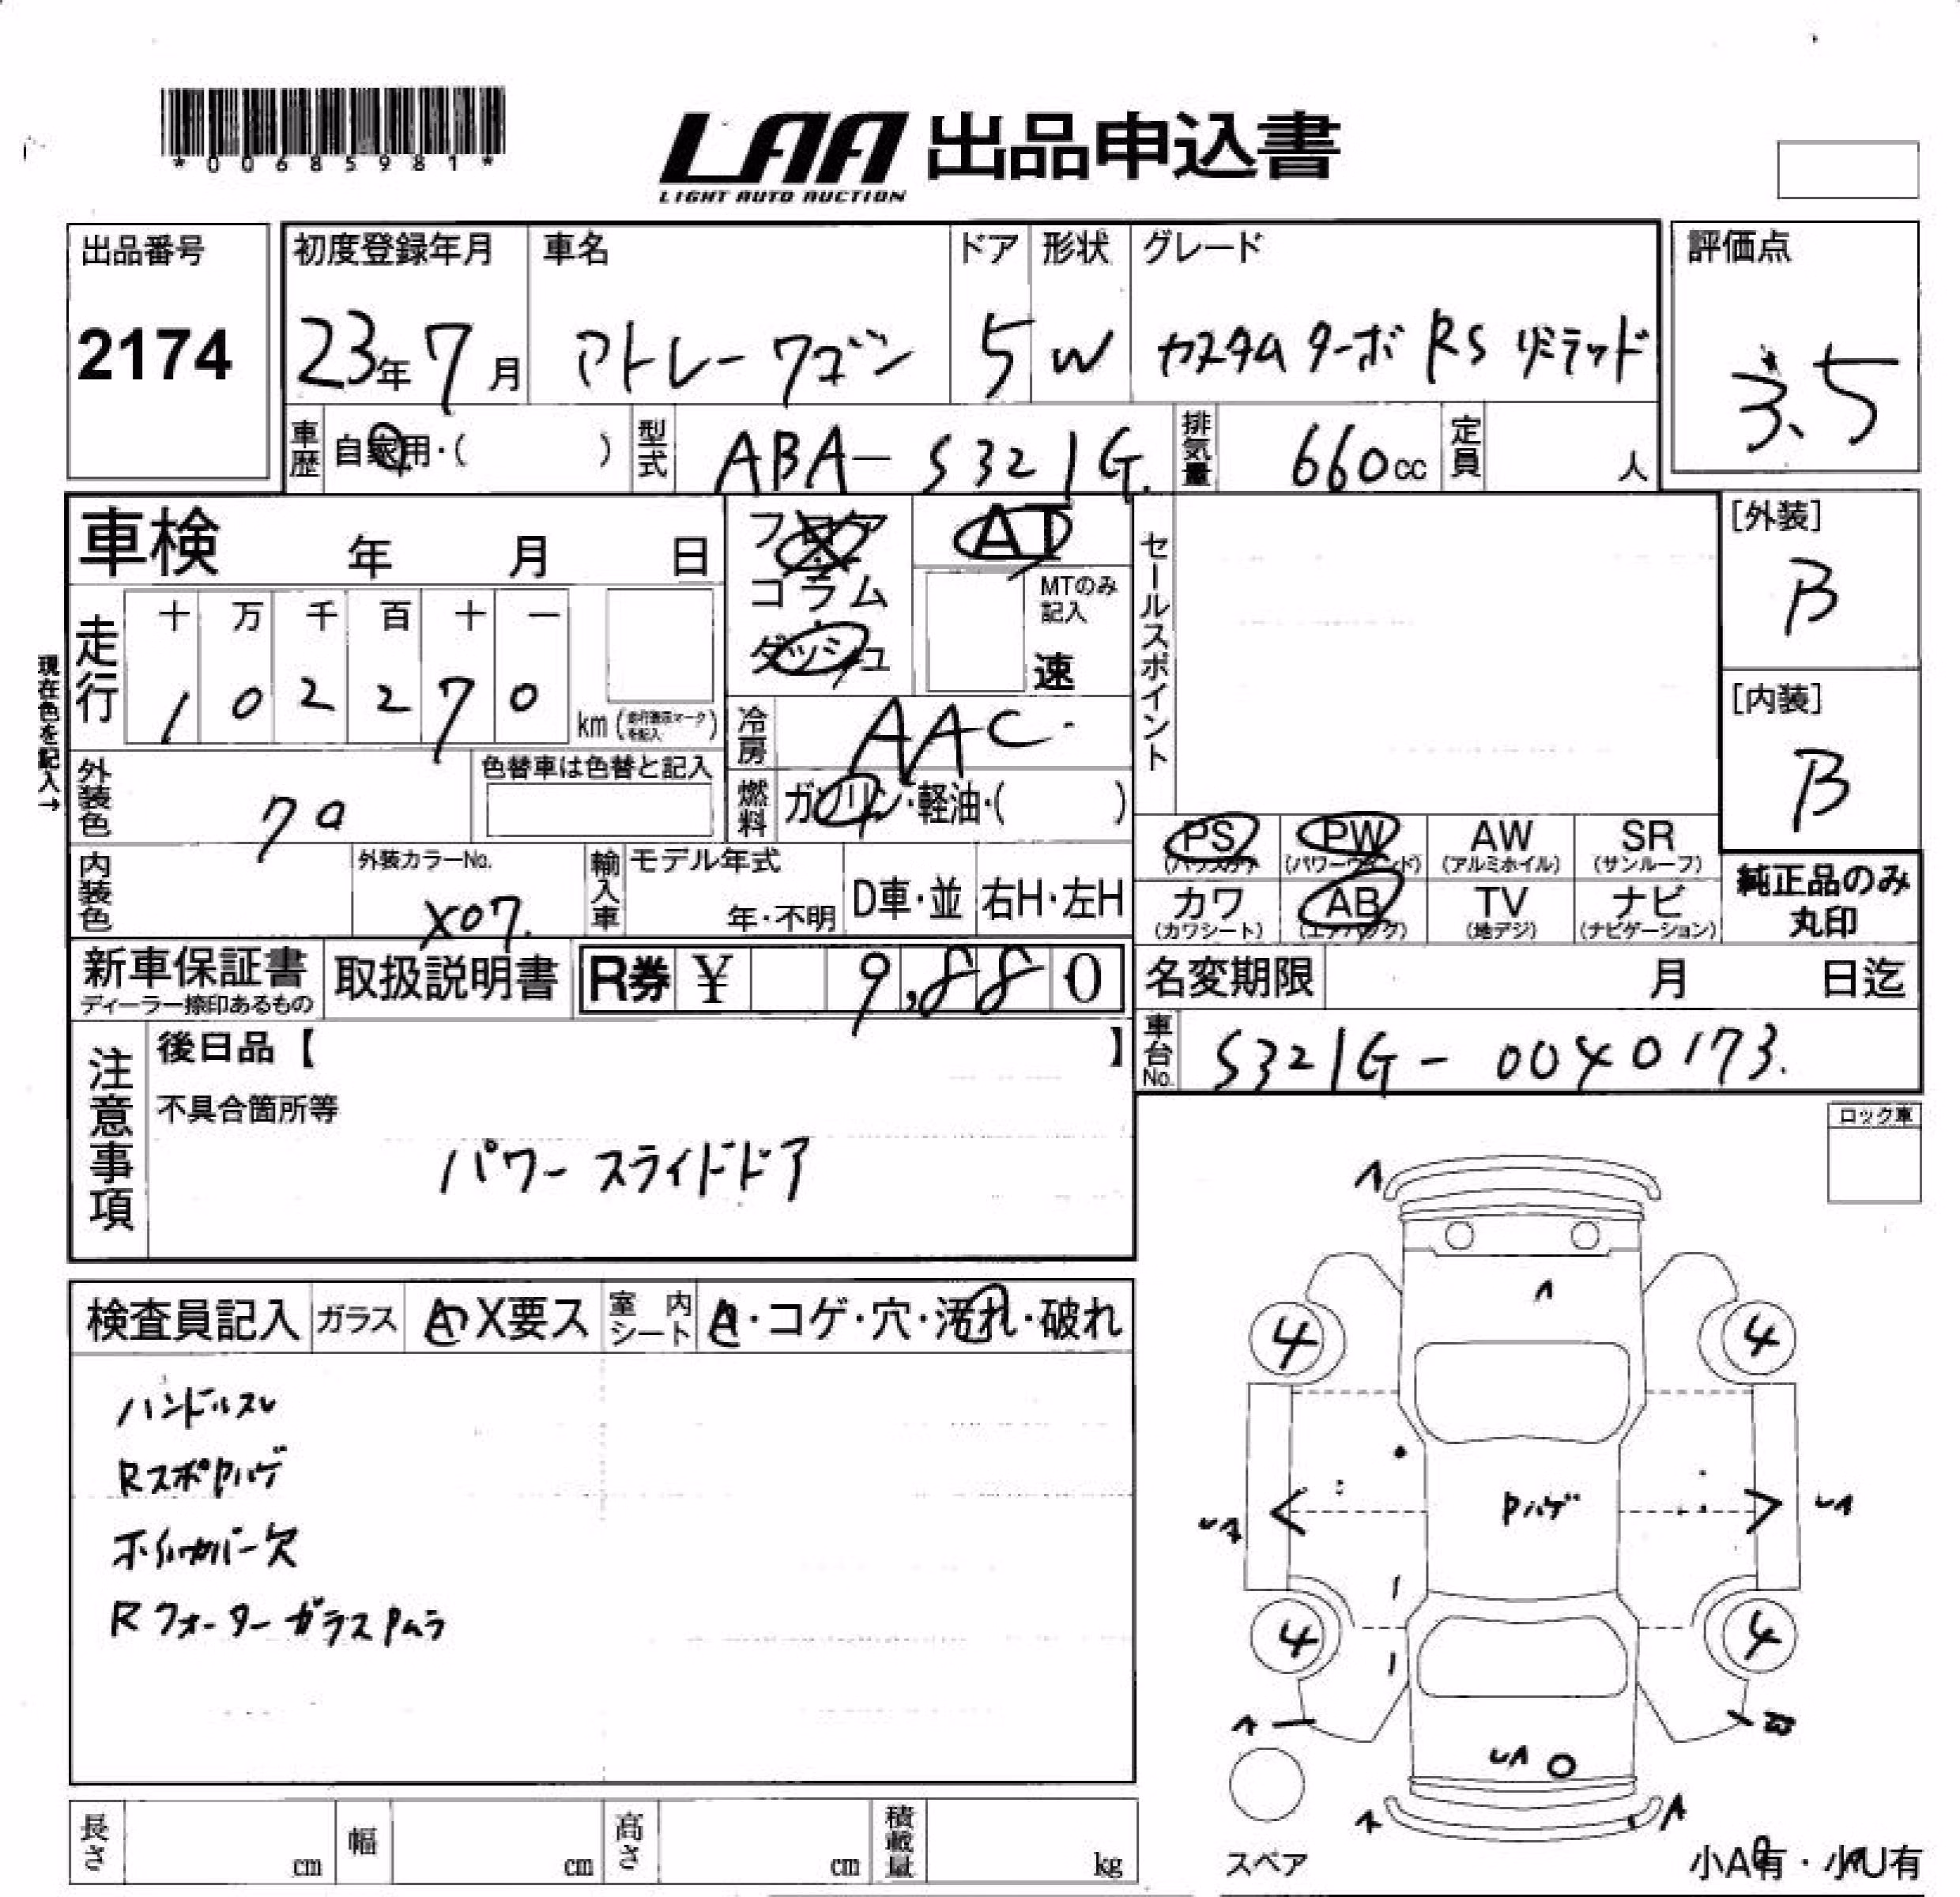 *00685981*
LAA 出品申込書
LIGHT AUTO AUCTION
出品番号
2174
初度登録年月
23年 7月
車名
アトレーワゴン
ドア
5
形状
W
グレード
カスタム ターボ RS リミテッド
評価点
3.5
車歴 自家用・( )
型式 ABA-S321G
排気量 660cc
定員 人
車検 年 月 日
フロア
コラム
ダッシュ
AT
MTのみ
記入
速
セールスポイント
[外装]
B
[内装]
B
現在色を記入→
走行
十 万 千 百 十 一
1 0 2 2 7 0
km (走行表示マークを記入)
冷房 AAC
燃料 ガソリン・軽油・( )
外装色 クロ
色替車は色替と記入
内装色
外装カラーNo.
X07.
輸入車
モデル年式
年・不明
D車・並
右H・左H
PS AW SR
PW
(パワステ) (パワーウィンド) (アルミホイル) (サンルーフ)
カワ AB TV ナビ
(カワシート) (エアバッグ) (地デジ) (ナビゲーション)
純正品のみ
丸印
新車保証書
ディーラー捺印あるもの
取扱説明書
R券 ¥ 9,880
名変期限 月 日迄
車台No. S321G-0040173.
注意事項
後日品【 】
不具合箇所等
パワースライドドア
ロック車
検査員記入 ガラス A・X要ス 室内シート A・コゲ・穴・汚れ・破れ
ハンドルスレ
RスポPハゲ
ホイルカバー欠
RクォーターガラスPムラ
A
A
4 4
Pハゲ
UA
UA
4 4
A
B
UA
A
A
スペア
小A有・小U有
長さ cm
幅 cm
高さ cm
積載量 kg